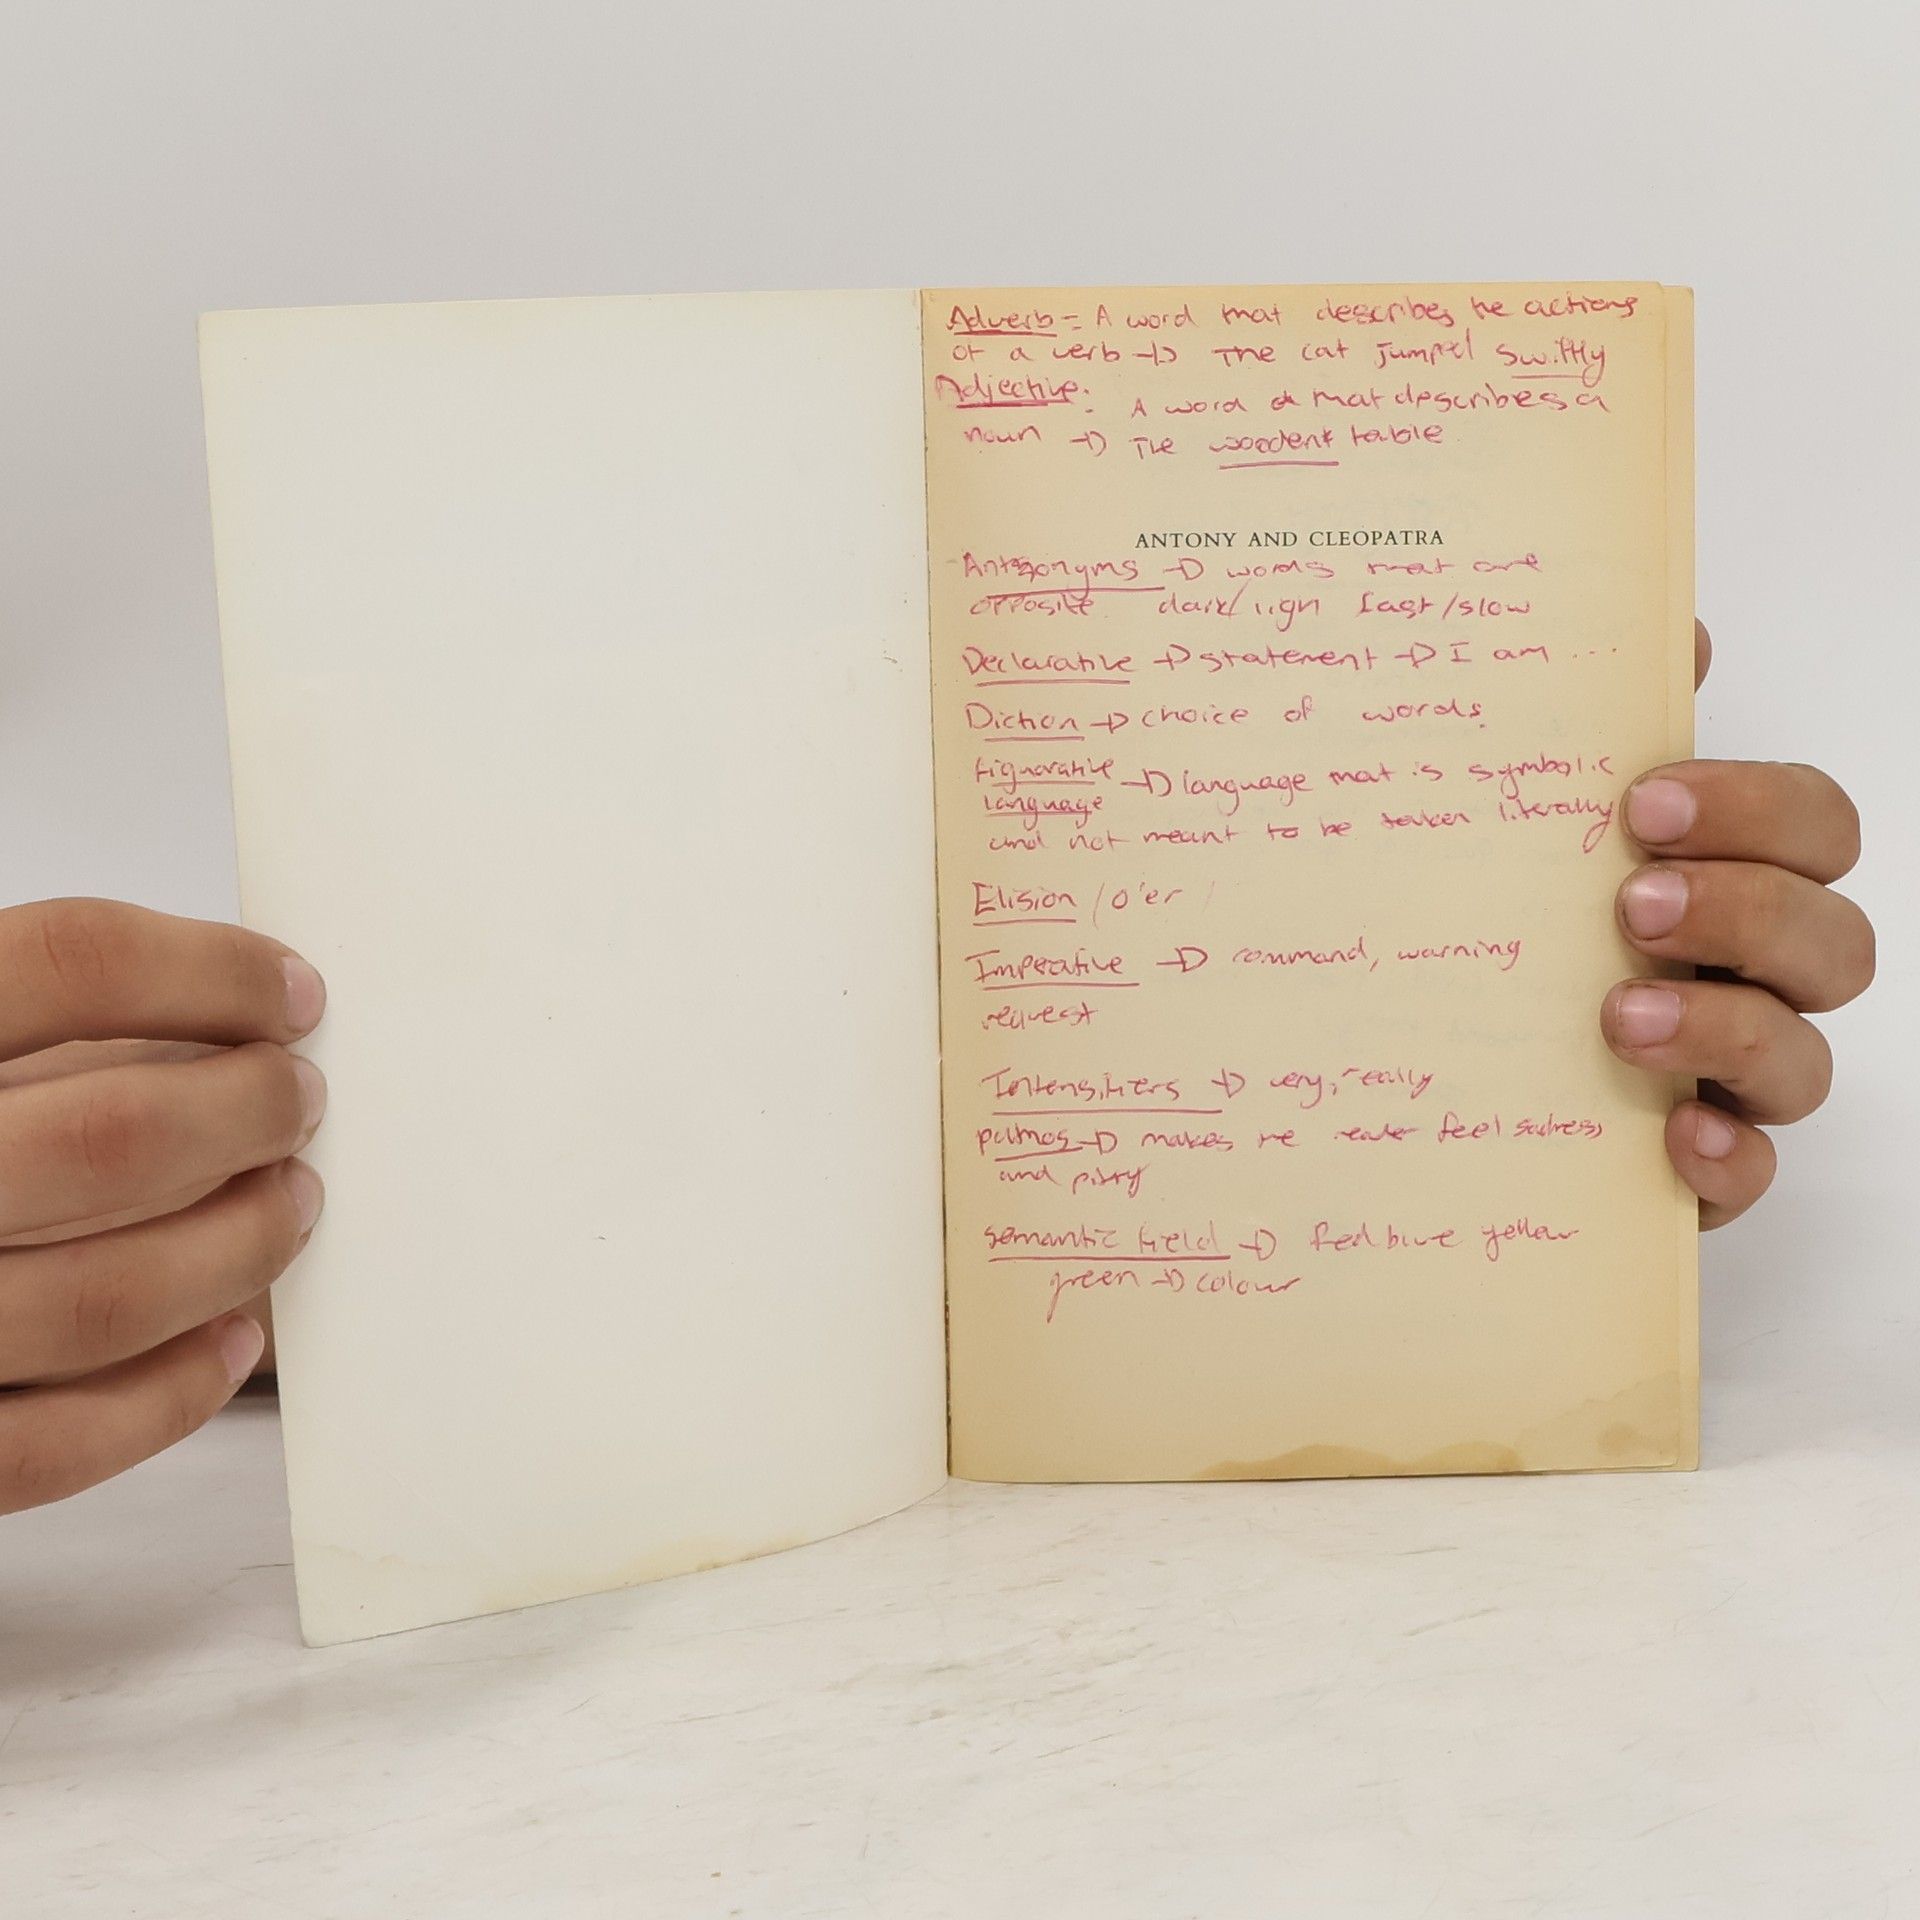 Adverb = A word that describes the actions
of a verb → The cat jumped swiftly
Adjective: A word that describes a
noun → The wooden table
ANTONY AND CLEOPATRA
Antonyms → words that are
opposite dark/lign fast/slow
Declarative → statement → I am ...
Diction → choice of words.
figuorative
language → language that is symbolic
and not meant to be taken literally
Elision / o'er /
Imperative → command, warning
request
Intensifiers → very, really
pathos → makes the reader feel sadness
and pitty
semantic field → Red blue yellow
green → colour